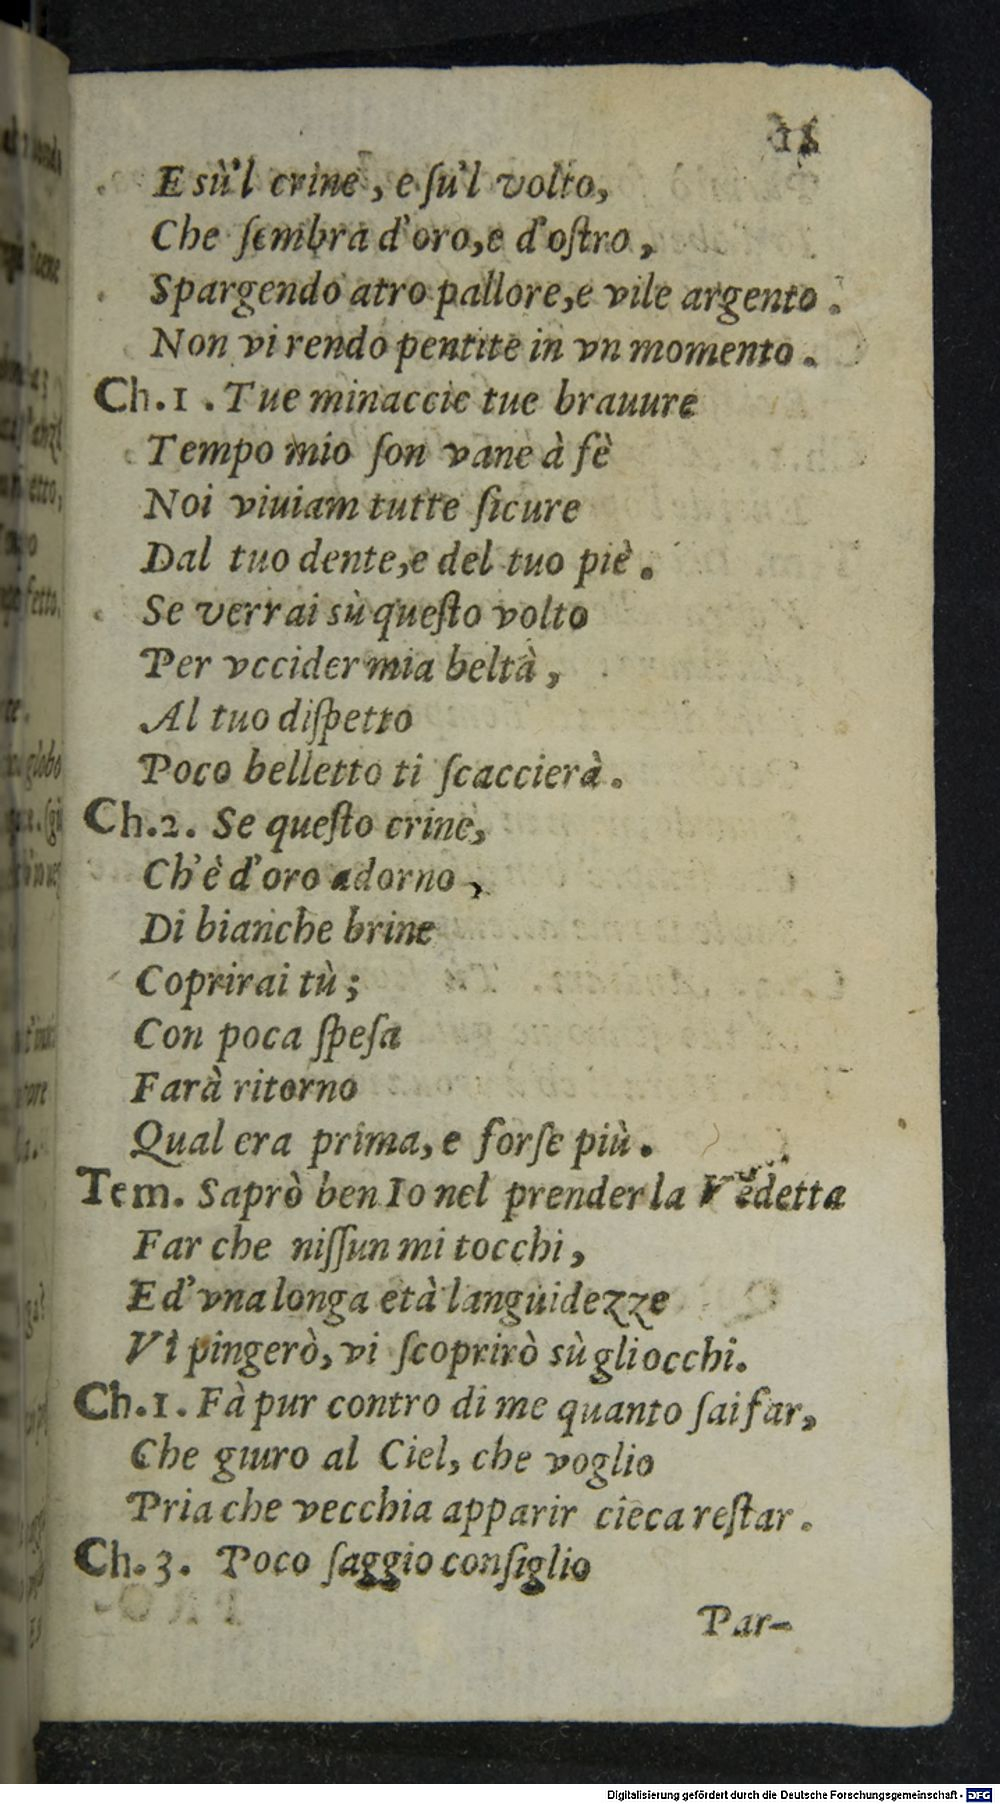 E sù'l crine, e ſu'l volto,
Che ſembra d'oro,e d'oſtro,
Spargendo atro pallore,e vile argento.
Non vi rendo pentite in vn momento.
Ch.1. Tue minaccie tue brauure
Tempo mio ſon vane à fè
Noi viuiam tutte ſicure
Dal tuo dente,e del tuo piè.
Se verrai sù queſto volto
Per vccider mia beltà,
Al tuo diſpetto
Poco belletto ti ſcaccierà.
Ch.2. Se queſto crine,
Ch'è d'oro adorno,
Di bianche brine
Coprirai tù;
Con poca ſpeſa
Farà ritorno
Qual era prima, e forſe più.
Tem. Saprò ben Io nel prender la Vẽdetta
Far che niſſun mi tocchi,
E d'vna longa età languidezze
Vi pingerò, vi ſcoprirò sù gli occhi.
Ch.1. Fà pur contro di me quanto ſai far,
Che giuro al Ciel, che voglio
Pria che vecchia apparir cieca reſtar.
Ch.3. Poco ſaggio conſiglio
Par-
Digitalisierung gefördert durch die Deutsche Forschungsgemeinschaft - DFG